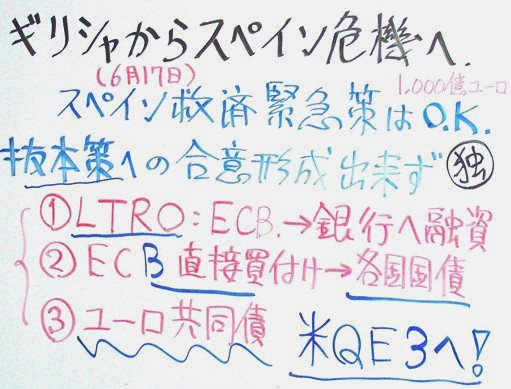 ギリシャからスペイン危機へ.
(6月17日)
1,000億ユーロ
スペイン救済緊急策はO.K.
抜本策への合意形成出来ず 独
①LTRO:ECB.→銀行へ融資
②ECB直接買付け→各国国債
③ユーロ共同債
米QE3へ!